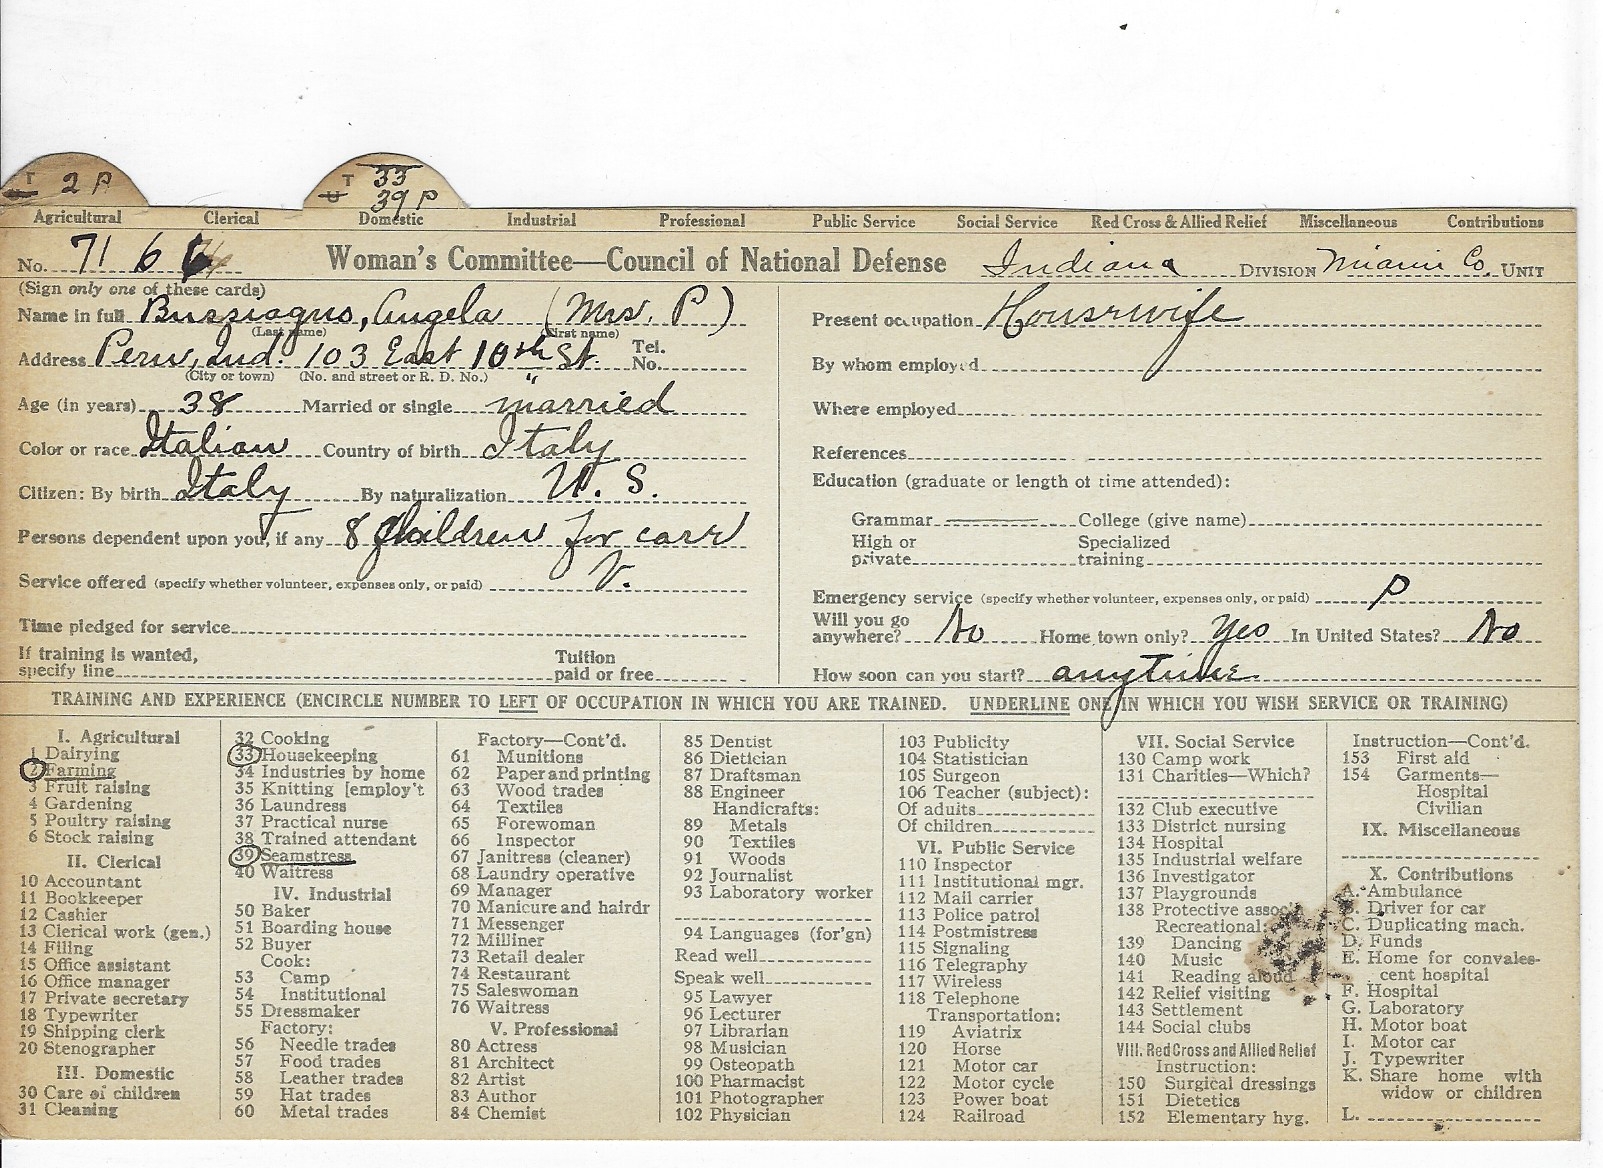 T 2 P
T 33
U 39 P
Agricultural Clerical Domestic Industrial Professional Public Service Social Service Red Cross & Allied Relief Miscellaneous Contributions
No. 71 6 Woman's Committee—Council of National Defense Indiana DIVISION Miami Co. UNIT
(Sign only one of these cards)
Name in full Bussiagno, Angela (Mrs. P)
(Last name) (First name)
Address Peru, Ind. 103 East 10th St. Tel. No.
(City or town) (No. and street or R. D. No.)
Age (in years) 38 Married or single married
Color or race Italian Country of birth Italy
Citizen: By birth Italy By naturalization U. S.
Persons dependent upon you, if any 8 children for care
Service offered (specify whether volunteer, expenses only, or paid) V.
Time pledged for service
If training is wanted, specify line Tuition paid or free
Present occupation Housewife
By whom employed
Where employed
References
Education (graduate or length of time attended):
Grammar College (give name)
High or private Specialized training
Emergency service (specify whether volunteer, expenses only, or paid) P
Will you go anywhere? No Home town only? Yes In United States? No
How soon can you start? anytime
TRAINING AND EXPERIENCE (ENCIRCLE NUMBER TO LEFT OF OCCUPATION IN WHICH YOU ARE TRAINED. UNDERLINE ONE IN WHICH YOU WISH SERVICE OR TRAINING)
I. Agricultural
1 Dairying
2 Farming
3 Fruit raising
4 Gardening
5 Poultry raising
6 Stock raising
II. Clerical
10 Accountant
11 Bookkeeper
12 Cashier
13 Clerical work (gen.)
14 Filing
15 Office assistant
16 Office manager
17 Private secretary
18 Typewriter
19 Shipping clerk
20 Stenographer
III. Domestic
30 Care of children
31 Cleaning
32 Cooking
33 Housekeeping
34 Industries by home
35 Knitting [employ't
36 Laundress
37 Practical nurse
38 Trained attendant
39 Seamstress
40 Waitress
IV. Industrial
50 Baker
51 Boarding house
52 Buyer
Cook:
53 Camp
54 Institutional
55 Dressmaker
Factory:
56 Needle trades
57 Food trades
58 Leather trades
59 Hat trades
60 Metal trades
Factory—Cont'd.
61 Munitions
62 Paper and printing
63 Wood trades
64 Textiles
65 Forewoman
66 Inspector
67 Janitress (cleaner)
68 Laundry operative
69 Manager
70 Manicure and hairdr
71 Messenger
72 Milliner
73 Retail dealer
74 Restaurant
75 Saleswoman
76 Waitress
V. Professional
80 Actress
81 Architect
82 Artist
83 Author
84 Chemist
85 Dentist
86 Dietician
87 Draftsman
88 Engineer
Handicrafts:
89 Metals
90 Textiles
91 Woods
92 Journalist
93 Laboratory worker
94 Languages (for'gn)
Read well
Speak well
95 Lawyer
96 Lecturer
97 Librarian
98 Musician
99 Osteopath
100 Pharmacist
101 Photographer
102 Physician
103 Publicity
104 Statistician
105 Surgeon
106 Teacher (subject):
Of adults
Of children
VI. Public Service
110 Inspector
111 Institutional mgr.
112 Mail carrier
113 Police patrol
114 Postmistress
115 Signaling
116 Telegraphy
117 Wireless
118 Telephone
Transportation:
119 Aviatrix
120 Horse
121 Motor car
122 Motor cycle
123 Power boat
124 Railroad
VII. Social Service
130 Camp work
131 Charities—Which?
132 Club executive
133 District nursing
134 Hospital
135 Industrial welfare
136 Investigator
137 Playgrounds
138 Protective assoc.
Recreational:
139 Dancing
140 Music
141 Reading aloud
142 Relief visiting
143 Settlement
144 Social clubs
VIII. Red Cross and Allied Relief
Instruction:
150 Surgical dressings
151 Dietetics
152 Elementary hyg.
Instruction—Cont'd.
153 First aid
154 Garments—
Hospital
Civilian
IX. Miscellaneous
X. Contributions
A. Ambulance
B. Driver for car
C. Duplicating mach.
D. Funds
E. Home for convales-
cent hospital
F. Hospital
G. Laboratory
H. Motor boat
I. Motor car
J. Typewriter
K. Share home with
widow or children
L.